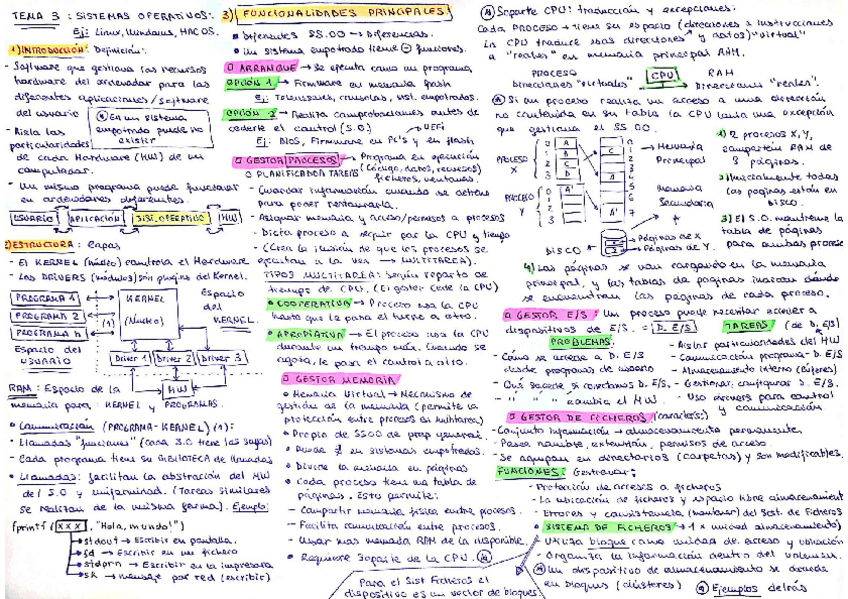 TEMA 3: SISTEMAS OPERATIVOS.
Ej: Linux, Windows, MACOS.
1) INTRODUCCIÓN: Definición:
- Software que gestiona los recursos
hardware del ordenador para las
diferentes aplicaciones/software
del usuario
* En un sistema
empotrado puede no
existir
- Aisla las
particularidades
de cada Hardware (HW) de un
computador.
- Un mismo programa puede funcionar
en ordenadores diferentes.
USUARIO APLICACIÓN SIST. OPERATIVO HW
2) ESTRUCTURA: Capas
- El KERNEL (núcleo) controla el Hardware
- Los DRIVERS (módulos) son plugins del Kernel.
PROGRAMA 1
PROGRAMA 2
PROGRAMA n
(1)
KERNEL
(Núcleo)
Espacio
del
KERNEL.
Espacio del
USUARIO
Driver 1 Driver 2 Driver 3
HW
RAM: Espacio de la
memoria para KERNEL y PROGRAMAS.
• Comunicación (PROGRAMA-KERNEL) (1):
- Llamadas "funciones" (cada S.O tiene las suyas)
- Cada programa tiene su BIBLIOTECA de llamadas
• Llamadas: facilitan la abstracción del HW
del S.O y uniformidad. (Tareas similares
se realizan de la misma forma). Ejemplo:
fprintf (XXX, "Hola, mundo!")
stdout → Escribir en pantalla.
fd → Escribir en un fichero
stdprn → Escribir en la impresora
sk → mensaje por red (escribir)
3) FUNCIONALIDADES PRINCIPALES
• Diferentes SS.OO → Diferencias.
• Un sistema empotrado tiene ⊖ funciones.
ARRANQUE → Se ejecuta como un programa
OPCIÓN 1 → Firmware en memoria flash
Ej: Televisores, consolas, sist. empotrados.
OPCIÓN 2 → Realiza comprobaciones antes de
cederle el control (S.O.)
UEFI
Ej: BIOS, Firmware en PC's y en flash
GESTOR PROCESOS → Programa en ejecución
(código, datos, recursos)
ficheros, ventanas.
PLANIFICADOR TAREAS
- Guardar información cuando se detiene
para poner restaurarla.
- Asignar memoria y acceso/permisos a procesos
- Dicta proceso a seguir por la CPU y tiempo
- (Crea la ilusión de que los procesos se
ejecutan a la vez → MULTITAREA).
TIPOS MULTITAREA: Según reparto de
tiempo de CPU. (El gestor cede la CPU)
• COOPERATIVA → Proceso usa la CPU
hasta que la pasa el turno a otro.
• APROPIATIVA → El proceso usa la CPU
durante un tiempo máx. Cuando se
agota, le pasa el control a otro.
GESTOR MEMORIA
• Memoria Virtual → Mecanismo de
gestión de la memoria (permite la
protección entre procesos en multitarea)
• Propio de SSOO de prop general.
• Puede ∄ en sistemas empotrados.
• Divide la memoria en páginas
• Cada proceso tiene una tabla de
páginas. Esto permite:
- Compartir memoria física entre procesos.
- Facilita comunicación entre procesos.
- Usar mas memoria RAM de la disponible.
• Requiere Soporte de la CPU. *
Para el Sist Ficheros el
dispositivo es un vector de bloques
* Soporte CPU: traducción y excepciones:
Cada PROCESO → tiene su espacio (direcciones a instrucciones
y datos) "virtual"
La CPU traduce esas direcciones
a "reales" en memoria principal RAM.
PROCESO CPU RAM
Direcciones "virtuales" Direcciones "reales".
* Si un proceso realiza un acceso a una dirección
no contenida en su tabla la CPU lanza una excepción
que gestiona el SS OO.
PROCESO
X
0 A
1 B
2 C
3
PROCESO
Y
0 A'
1
2
3
Memoria
Principal
Memoria
Secundaria
DISCO
Páginas de X
Páginas de Y.
1) 2 procesos X, Y,
comparten RAM de
8 páginas.
2) Inicialmente todas
las páginas están en
DISCO
3) El S.O. mantiene la
tabla de páginas
para ambos procesos
4) Las páginas se van cargando en la memoria
principal, y las tablas de páginas indican dónde
se encuentran las páginas de cada proceso.
GESTOR E/S: Un proceso puede necesitar acceder a
dispositivos de E/S. = D. E/S
TAREAS (de D. E/S)
PROBLEMAS:
- Cómo se accede a D. E/S
desde programas de usuario
- Qué sucede si conectamos D. E/S.
- " " " cambia el HW.
- Aislar particularidades del HW
- Comunicación programa-D. E/S
- Almacenamiento interno (búferes)
- Gestionar, configurar D. E/S.
- Uso drivers para control
y comunicación
GESTOR DE FICHEROS (caracts:)
- Conjunto información → almacenamiento permanente
- Posee nombre, extensión, permisos de acceso.
- Se agrupan en directorios (carpetas) y son modificables.
FUNCIONES: Gestionar:
- Protección de accesos a ficheros
- La ubicación de ficheros y espacio libre almacenamiento
- Errores y consistencia (mantener) del Sist. de Ficheros
• SISTEMA DE FICHEROS → 1 x unidad almacenamiento)
- Utiliza bloque como unidad de acceso y ubicación
- Organiza la información dentro del volumen.
* Un dispositivo de almacenamiento se divide
en bloques (clústeres)
* Ejemplos detrás